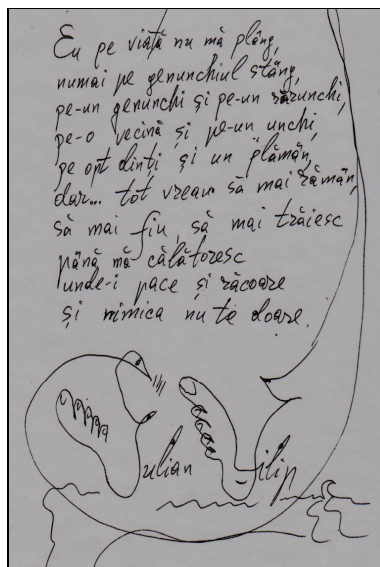 Eu pe viață nu mă plâng,
numai pe genunchiul stâng,
pe-un genunchi și pe-un rărunchi,
pe-o vecină și pe-un unchi,
pe opt dinți și un plămân,
dar... tot vreau să mai rămân,
să mai fiu, să mai trăiesc
până mă călătoresc
unde-i pace și răcoare
și nimica nu te doare.
Iulian Filip